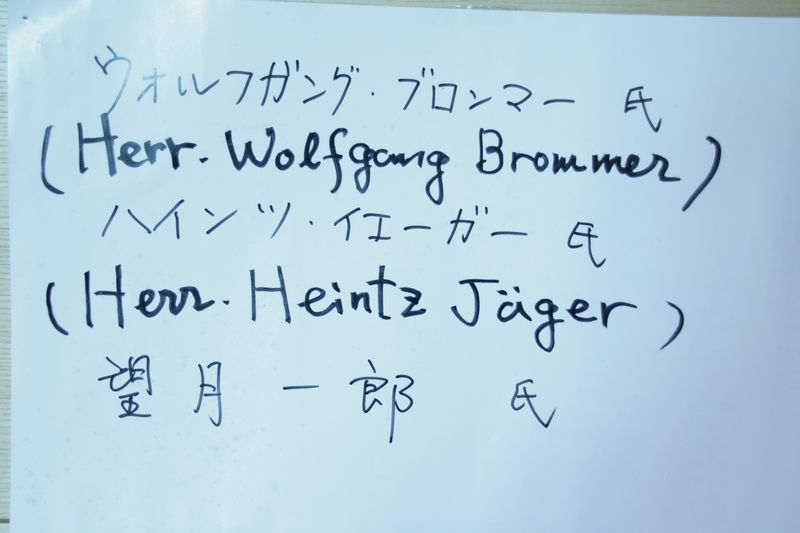 ウォルフガング・ブロンマー 氏
(Herr. Wolfgang Brommer)
ハインツ・イエーガー 氏
(Herr. Heintz Jäger)
望月一郎 氏